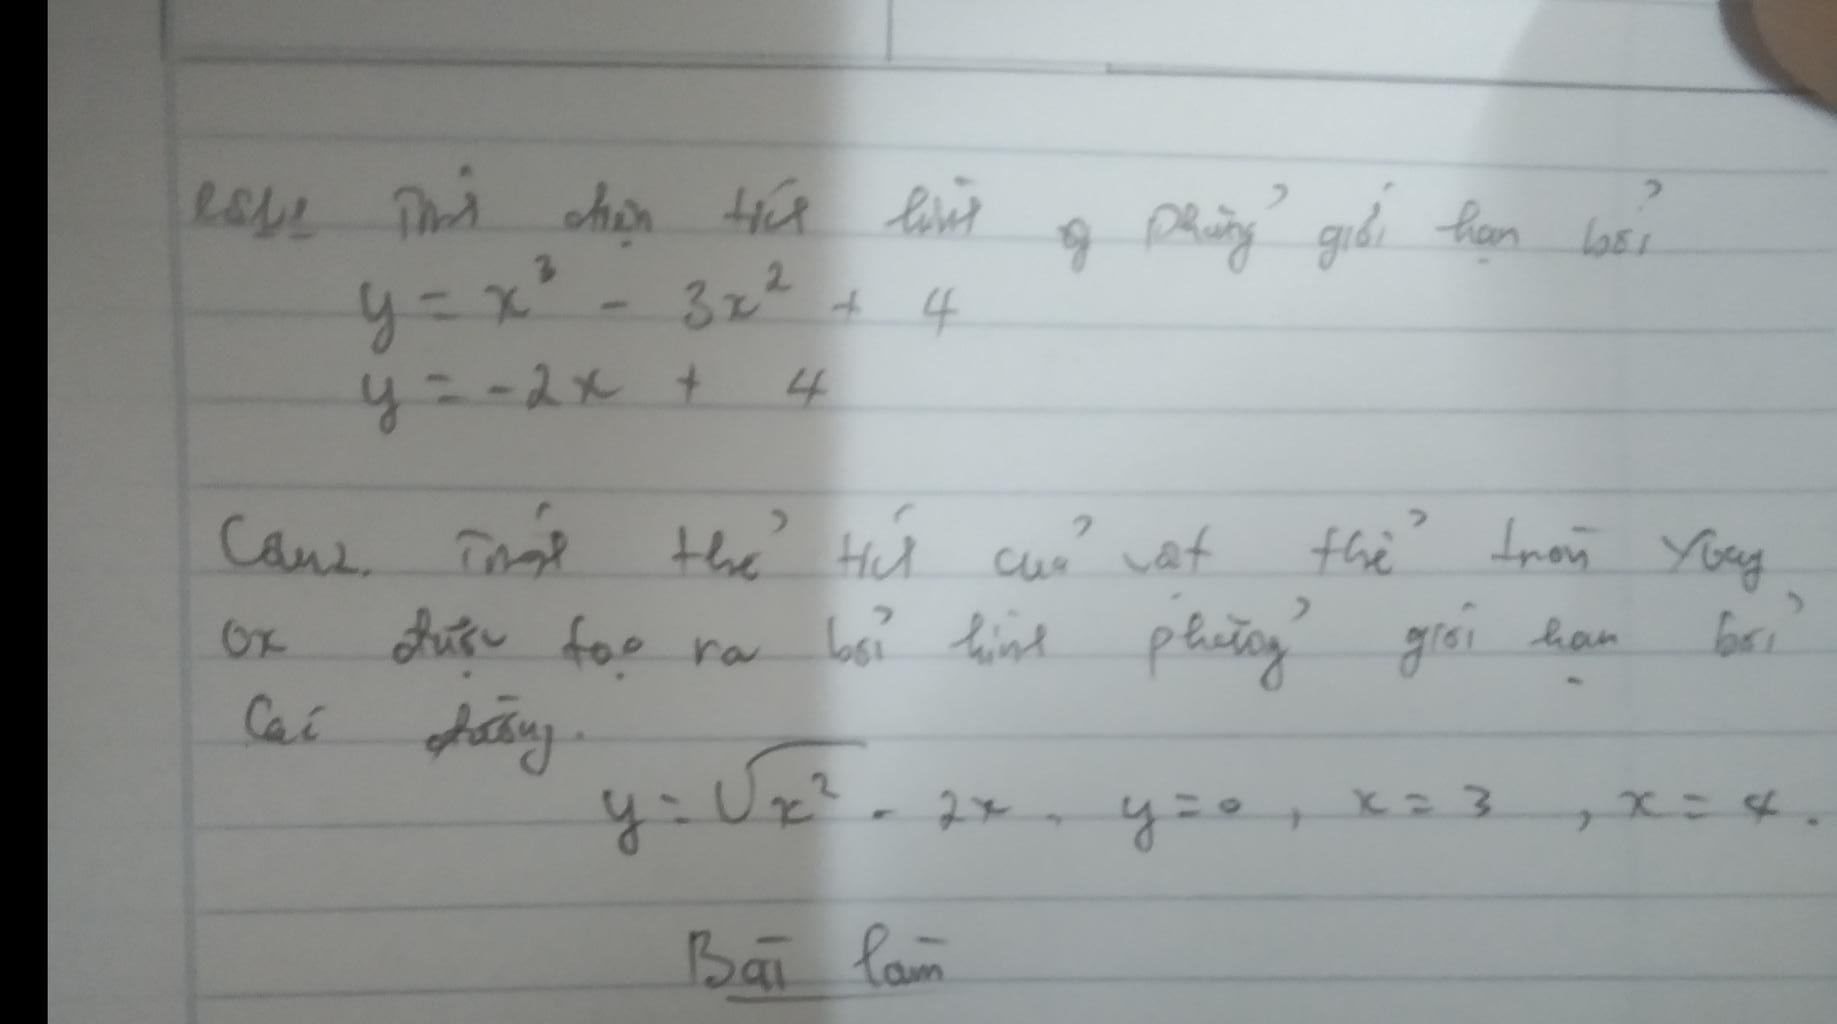 Câu1: Tính diện tích hình phẳng giới hạn bởi
y = x³ - 3x² + 4
y = -2x + 4
Câu2. Tính thể tích của vật thể tròn xoay
ox được tạo ra bởi hình phẳng giới hạn bởi
Các đường.
y = √x² - 2x, y = 0, x = 3, x = 4.
Bài làm